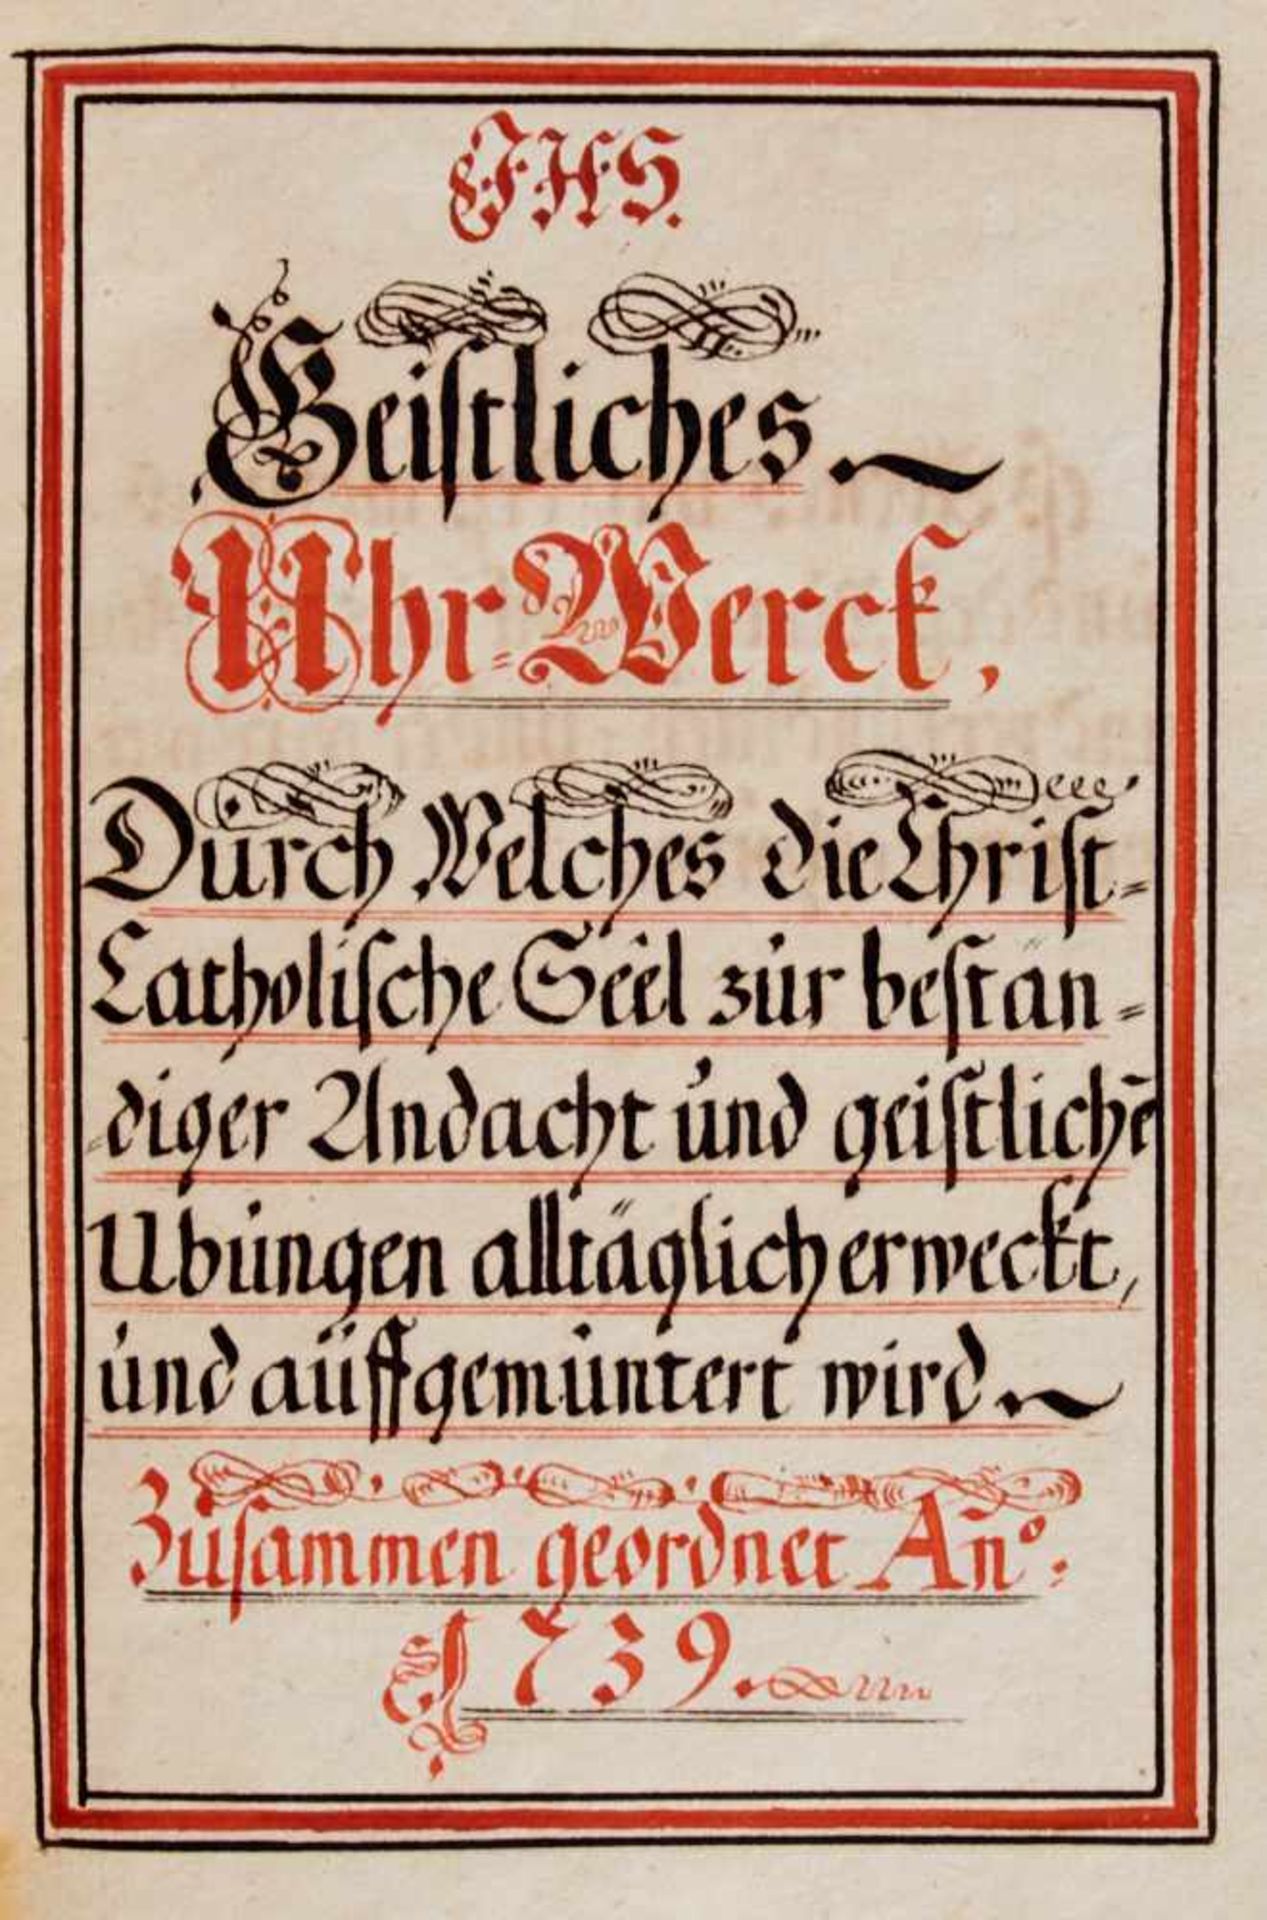 J.H.S.
Geiſtliches
Uhr=Werck,
Durch Welches die Chriſt=
Catholiſche Seel zur beſtän=
=diger Andacht und geiſtlichē
Ubungen alltäglich erweckt,
und auffgemuntert wird
Zuſammen geordnet Añº:
1739.